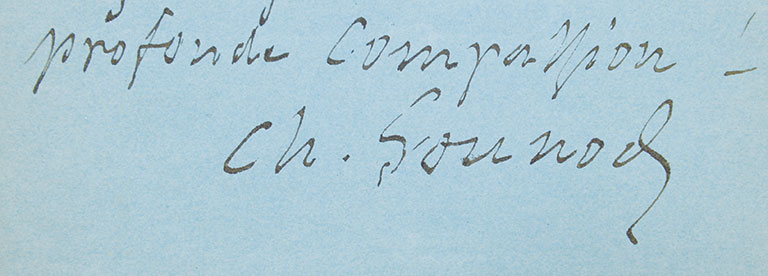 profonde compassion !
Ch. Gounod